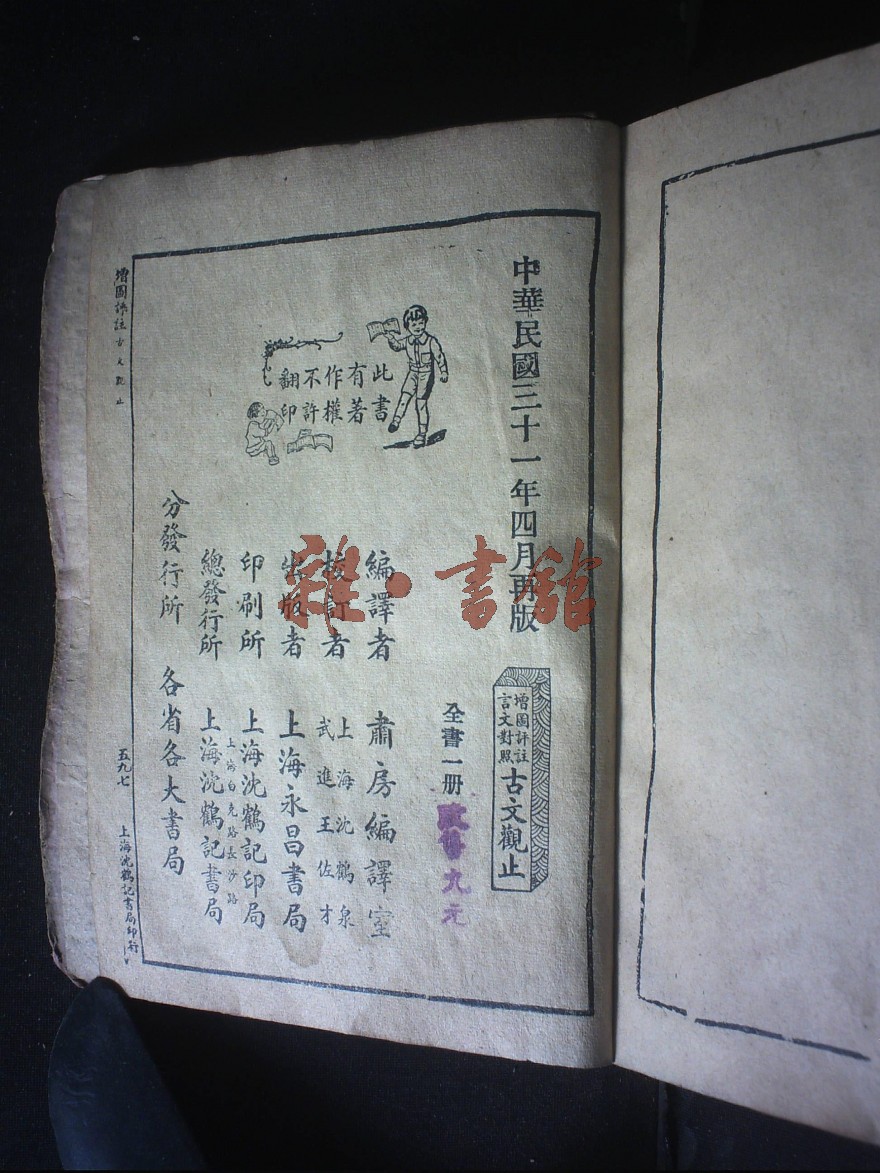 中華民國三十一年四月再版
增圖評註
言文對照
古文觀止
全書一册
九元
此書
有著
作權
不許
翻印
編譯者 肅房編譯室
校訂者 上海沈鶴泉
武進王佐才
出版者 上海永昌書局
印刷所 上海沈鶴記印局
上海白克路長沙路
總發行所 上海沈鶴記書局
分發行所 各省各大書局
增圖評註古文觀止
五九七
上海沈鶴記書局印行
雜·書館